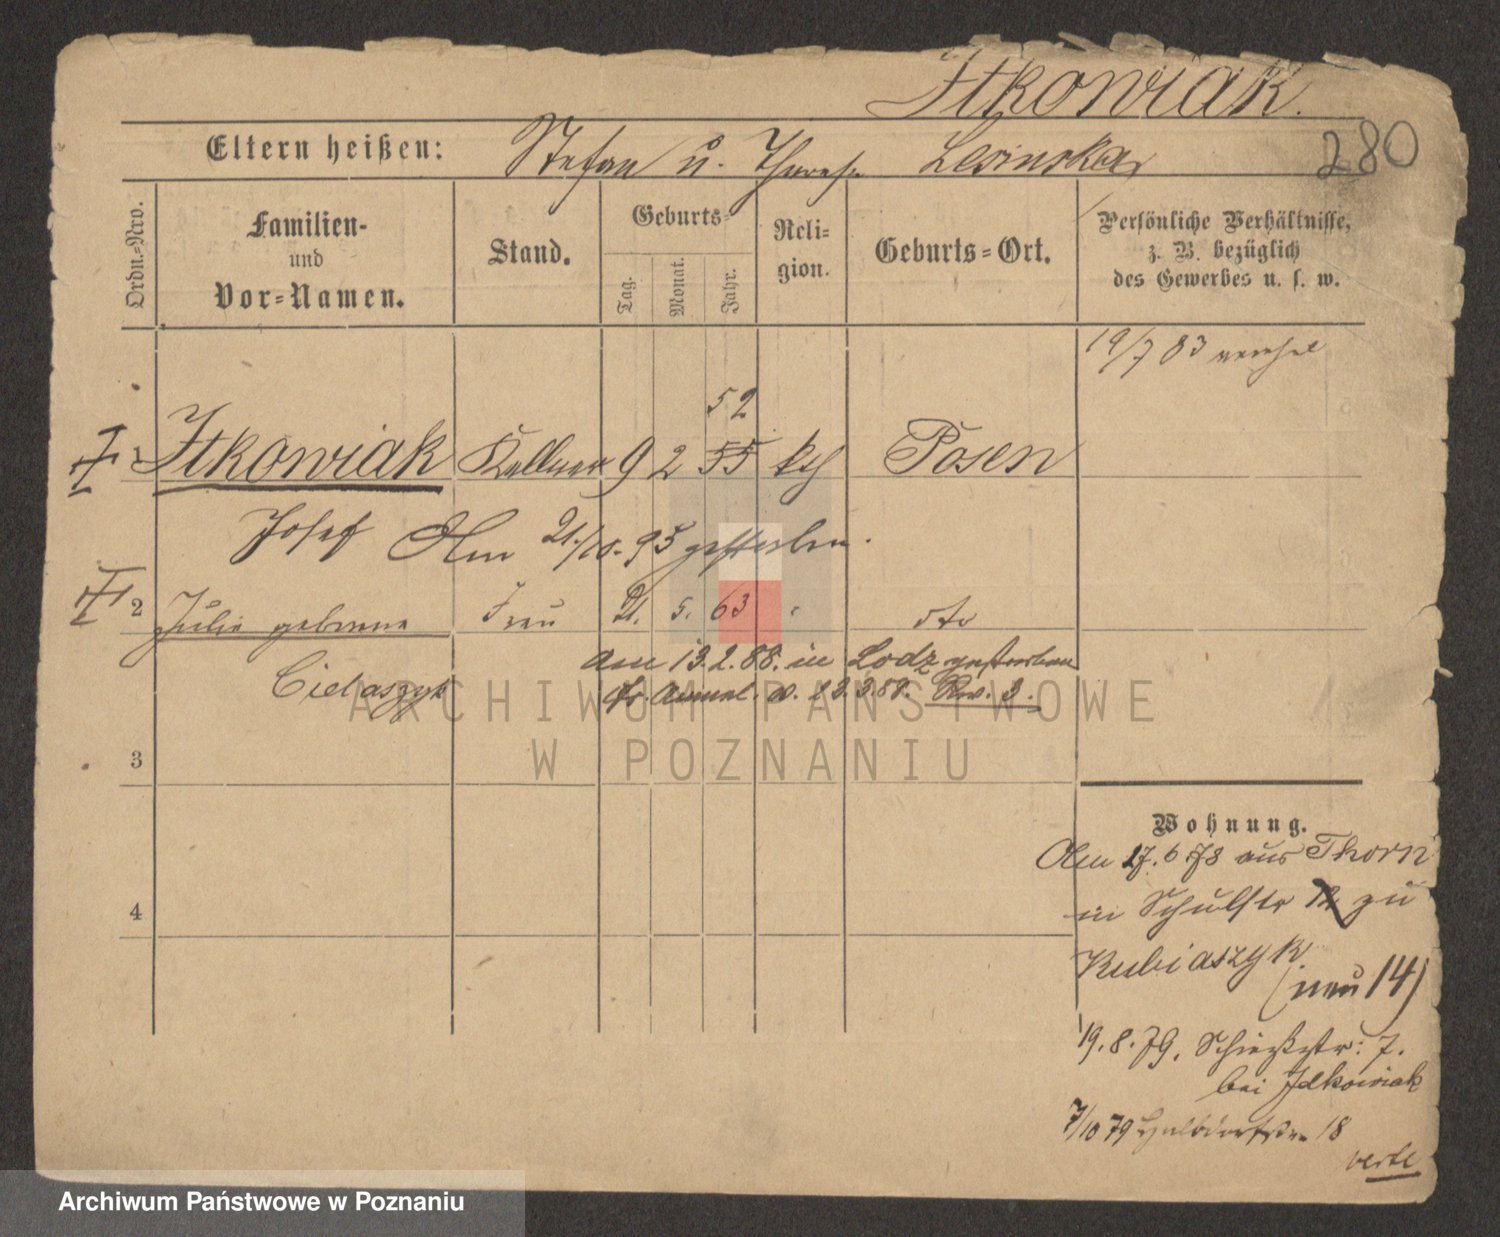 Itkowiak.
280
Eltern heißen: Stefan u. Theres. Lesinska
Ordn.=Nro.
Familien-
und
Vor=Namen.
Stand.
Geburts=
Tag.
Monat.
Jahr.
Reli=
gion.
Geburts=Ort.
Persönliche Verhältnisse,
z. B. bezüglich
des Gewerbes u. s. w.
19/7 83
52
1 Itkowiak Kellner 9 2 55 kth Posen
Josef Am 21./10. 95 gestorben.
2 Julie geborene Frau 21. 5. 63 dto
Cielaszyk
am 13.2.88. in Lodz gestorben
fr. Anmel. v. 23.3.89. Rev. 3.
3
4
Wohnung.
Am 27.6 78 aus Thorn
in Schulstr 12 zu
Kubiaszyk
(neu 14)
19.8.79. Schießstr: 7.
bei Itkowiak
7/10 79 Halbdorfstr 18
verte
ARCHIWUM PAŃSTWOWE
W POZNANIU
Archiwum Państwowe w Poznaniu